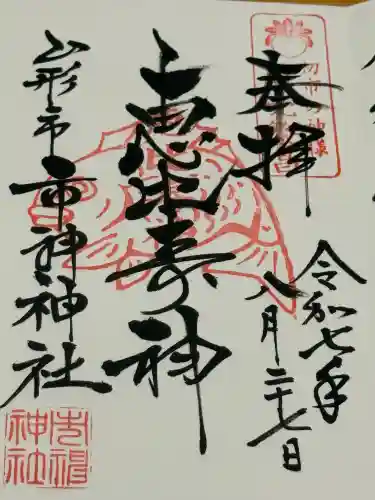 奉拝
令和七年
八月二十七日
上恵比寿神
山形市
市神神社
市神
神社